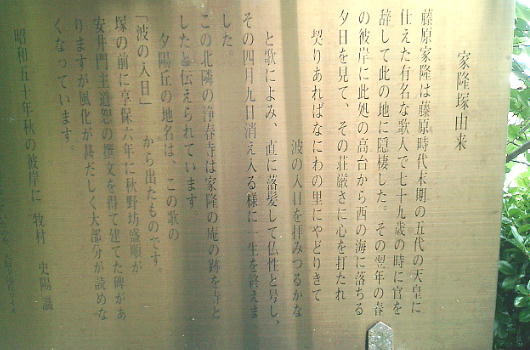 家隆塚由来
藤原家隆は藤原時代末期の五代の天皇に
仕えた有名な歌人で七十九歳の時に官を
辞して此の地に隠棲した。その翌年の春
の彼岸に此処の高台から西の海に落ちる
夕日を見て、その荘厳さに心を打たれ
契りあればなにわの里にやどりきて
波の入日を拝みつるかな
と歌によみ、直に落髪して仏性と号し、
その四月九日消え入る様に一生を終えま
した。
この北隣の浄春寺は家隆の庵の跡を寺と
したと伝えられています。
夕陽丘の地名は、この歌の
「波の入日」から出たものです。
塚の前に享保六年に秋野坊盛順が
安井門主道恕の撰文を得て建てた碑があ
りますが風化が甚だしく大部分が読めな
くなっています。
昭和五十年秋の彼岸に 牧村 史陽 識